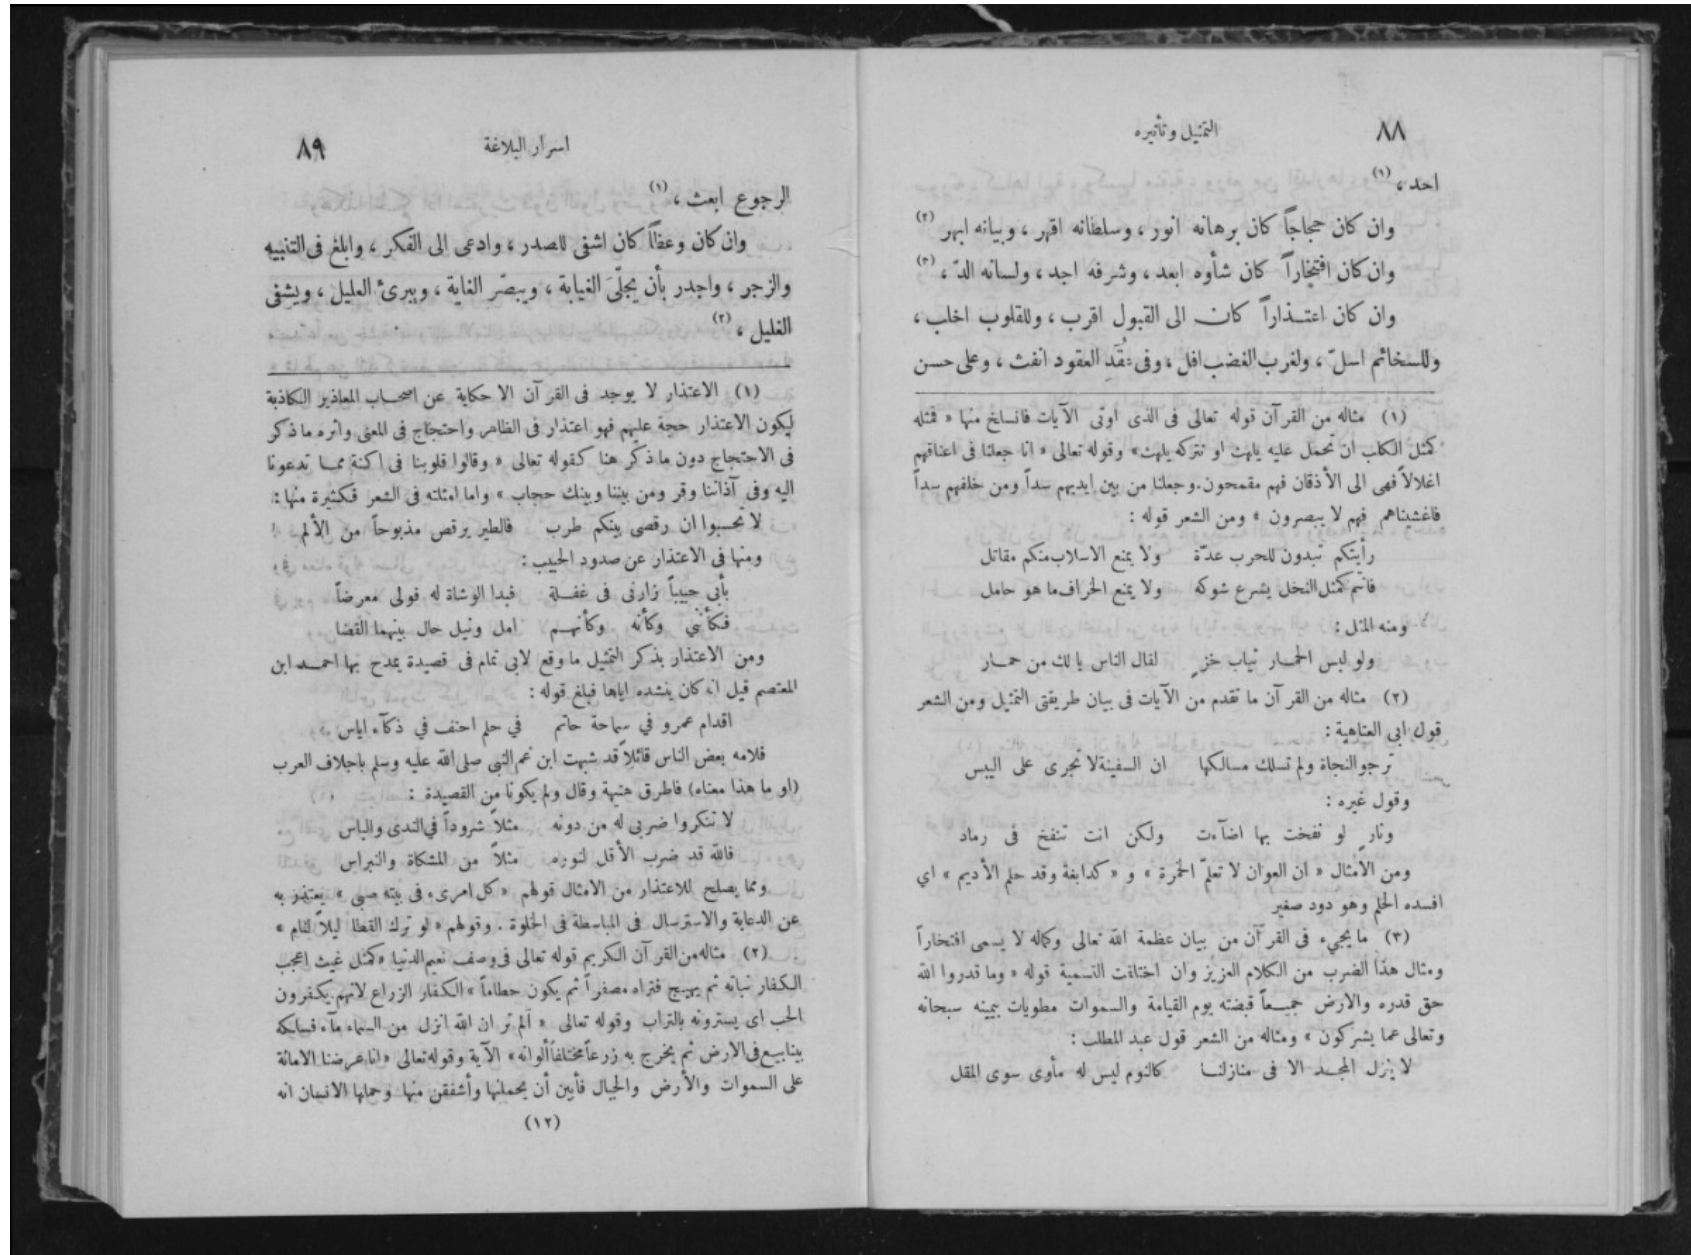 ٨٨
التمثيل وتأثيره
احد، (١)
وان كان حجاجاً كان برهانه انور، وسلطانه اقهر، وبيانه ابهر (٢)
وان كان افتخاراً كان شأوه ابعد، وشرفه اجد، ولسانه الدّ، (٣)
وان كان اعتذاراً كان الى القبول اقرب، وللقلوب اخلب،
وللسخائم اسلّ، ولغرب الغضب افل، وفى عُقَدِ العقود انفث، وعلى حسن
(١) مثاله من القرآن قوله تعالى فى الذى اوتى الآيات فانسلخ منها « فمثله
كمثل الكلب ان تحمل عليه يلهث او تتركه يلهث» وقوله تعالى « انا جعلنا فى اعناقهم
اغلالاً فهى الى الأذقان فهم مقمحون. وجعلنا من بين ايديهم سداً ومن خلفهم سداً
فاغشيناهم فهم لا يبصرون » ومن الشعر قوله :
رأيتكم تبدون للحرب عدّة ولا يمنع الاسلاب منكم مقاتل
فانتم كمثل النخل يشرع شوكه ولا يمنع الخراف ما هو حامل
ومنه المثل :
ولو لبس الحمار ثياب خزٍ لقال الناس يا لك من حمار
(٢) مثاله من القرآن ما تقدم من الآيات فى بيان طريقتى التمثيل ومن الشعر
قول ابى العتاهية :
ترجو النجاة ولم تسلك مسالكها ان السفينة لا تجرى على اليبس
وقول غيره :
ونارٍ لو نفخت بها اضآءت ولكن انت تنفخ فى رماد
ومن الأمثال « ان العوان لا تعلّم الخمرة » و « كدابغة وقد حلم الأديم » اي
افسده الحلم وهو دود صغير
(٣) ما يجيء فى القرآن من بيان عظمة الله تعالى وكماله لا يسمى افتخاراً
ومثال هذا الضرب من الكلام العزيز وان اختلفت التسمية قوله « وما قدروا الله
حق قدره والارض جميعاً قبضته يوم القيامة والسموات مطويات بيمينه سبحانه
وتعالى عما يشركون » ومثاله من الشعر قول عبد المطلب :
لا ينزل المجد الا فى منازلنا كالنوم ليس له مأوى سوى المقل
اسرار البلاغة
٨٩
الرجوع ابعث، (١)
وان كان وعظاً كان اشفى للصدر، وادعى الى الفكر، وابلغ فى التنبيه
والزجر، واجدر بأن يجلّىَ الغيابة، ويبصّر الغاية، ويبرئ العليل، ويشفى
الغليل، (٢)
(١) الاعتذار لا يوجد فى القرآن الا حكاية عن اصحاب المعاذير الكاذبة
ليكون الاعتذار حجة عليهم فهو اعتذار فى الظاهر واحتجاج فى المعنى واثره ما ذكر
فى الاحتجاج دون ما ذكر هنا كقوله تعالى « وقالوا قلوبنا فى اكنة مما تدعونا
اليه وفى آذاننا وقر ومن بيننا وبينك حجاب » واما امثلته فى الشعر فكثيرة منها :
لا تحسبوا ان رقصى بينكم طرب فالطير يرقص مذبوحاً من الألم
ومنها فى الاعتذار عن صدود الحبيب :
بأبى حبيباً زارنى فى غفلة فبدا الوشاة له فولى معرضاً
فكأننى وكأنه وكأنهم امل ونيل حال بينهما القضا
ومن الاعتذار بذكر التمثيل ما وقع لابى تمام فى قصيدة يمدح بها احمد ابن
المعتصم قيل انه كان ينشده اياها فبلغ قوله :
اقدام عمرو في سماحة حاتم في حلم احنف في ذكآء اياس
فلامه بعض الناس قائلاً قد شبهت ابن عم النبى صلى الله عليه وسلم باجلاف العرب
(او ما هذا معناه) فاطرق هنيهة وقال ولم يكونا من القصيدة :
لا تنكروا ضربى له من دونه مثلاً شروداً في الندى والباس
فالله قد ضرب الأقل لنوره مثلاً من المشكاة والنبراس
ومما يصلح للاعتذار من الامثال قولهم « كل امرىء فى بيته صبى » يعتذر به
عن الدعابة والاسترسال فى المباسطة فى الخلوة . وقولهم « لو ترك القطا ليلاً لنام »
(٢) مثاله من القرآن الكريم قوله تعالى فى وصف نعيم الدنيا «كمثل غيث اعجب
الكفار نباته ثم يهيج فتراه مصفراً ثم يكون حطاماً » الكفار الزراع لانهم يكفرون
الحب اى يسترونه بالتراب وقوله تعالى « ألم تر ان الله انزل من السماء مآء فسلكه
ينابيع فى الارض ثم يخرج به زرعاً مختلفاً ألوانه» الآية وقوله تعالى «انا عرضنا الامانة
على السموات والأرض والجبال فأبين أن يحملنها وأشفقن منها وحملها الانسان انه
(١٢)